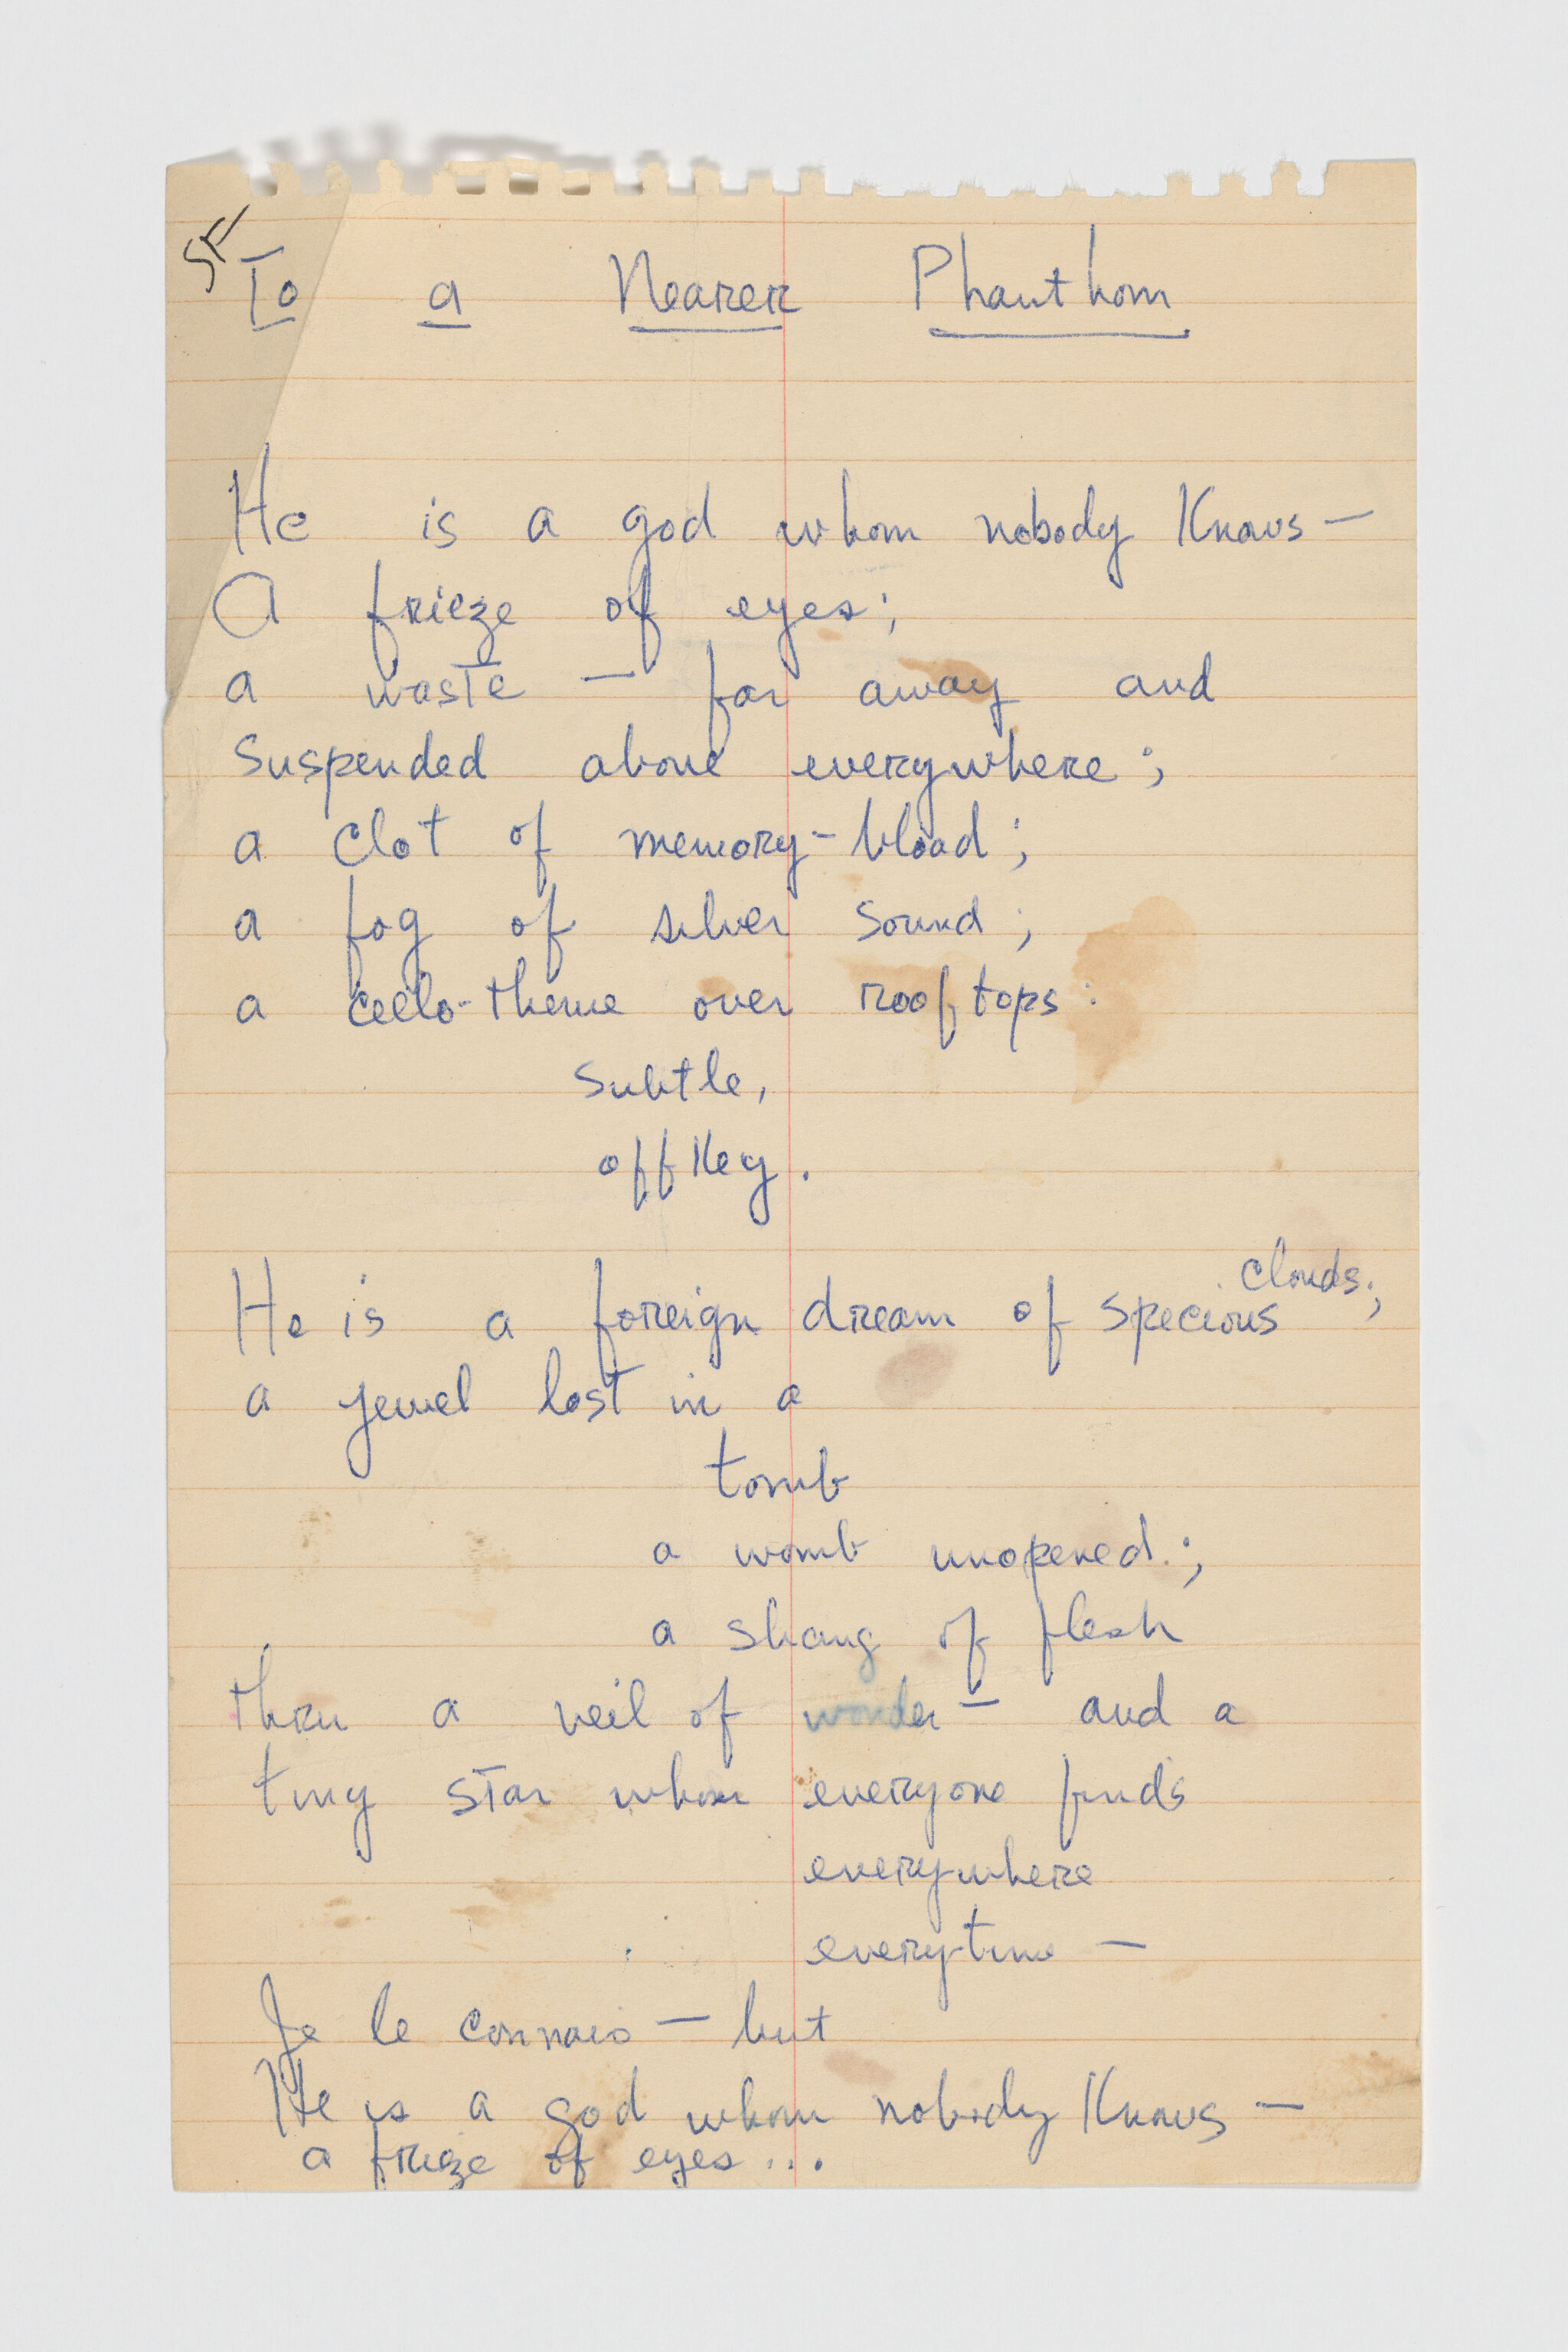 SF
To a Nearer Phanthom
He is a god whom nobody Knows —
A frieze of eyes;
a waste — far away and
suspended above everywhere;
a clot of memory-blood;
a fog of silver sound;
a cello-theme over rooftops:
subtle,
offkey.
He is a foreign dream of specious clouds;
a jewel lost in a
tomb
a womb unopened;
a shang of flesh
thru a veil of wonder — and a
tiny star whom everyone finds
everywhere
everytime —
Je le connais — but
He is a god whom nobody Knows —
a frieze of eyes...